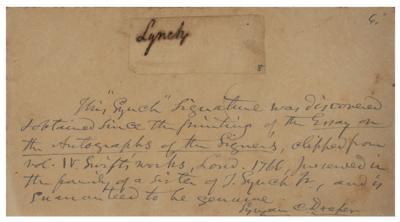 6.
Lynch
8
This "Lynch" Signature was discovered
& obtained since the printing of the Essay on
the Autographs of the Signers, clipped from
vol. IV. Swift's works, Lond. 1766, preserved in
the family of a sister of T. Lynch Jr., and is
guaranteed to be genuine.
Lyman C. Draper